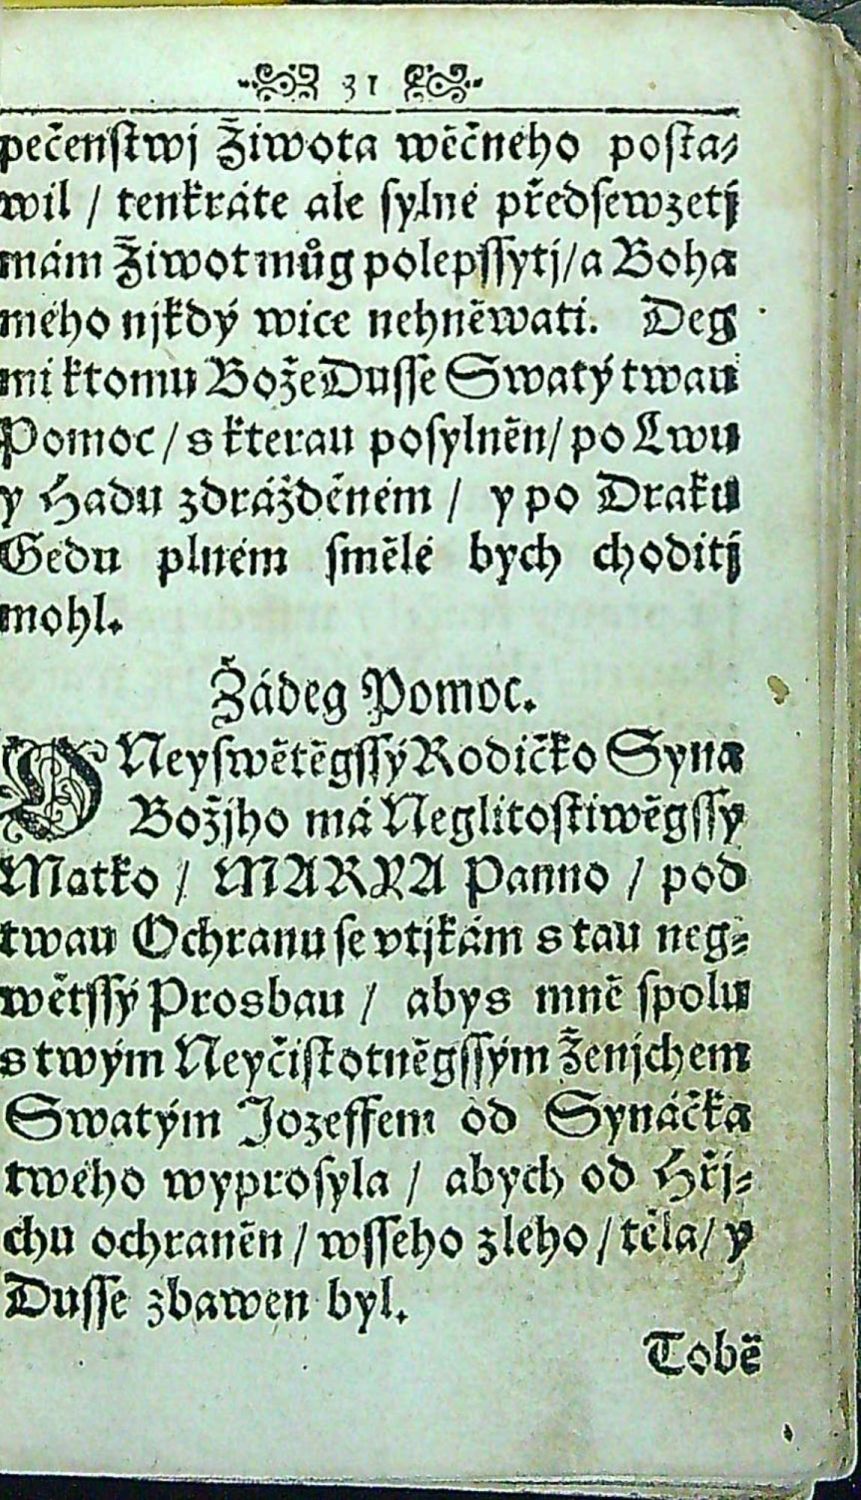 31
pečenſtwj Žiwota wěčného poſta⸗
wil / tenkráte ale ſylné předſewzetj
mám Žiwot můg polepſſytj/a Boha
mého njkdý wice nehněwati. Deg
mi ktomu Bože Duſſe Swatý twau
Pomoc / s kterau poſylněn/ po Lwu
y Hadu zdrážděném / y po Draku
Gedu plném ſmělé bych choditj
mohl.
Žádeg Pomoc.
O Neyſwětěgſſý Rodičko Syna
Božjho má Neglitoſtiwěgſſy
Matko / MARYA Panno / pod
twau Ochranu ſe vtjkám s tau neg⸗
wětſſý Prosbau / abys mně ſpolu
s twým Neyčiſtotněgſſým Ženjchem
Swatým Jozeffem od Synáčka
twého wyproſyla / abych od Hřj⸗
chu ochraněn / wſſeho zlého / těla/ y
Duſſe zbawen byl.
Tobě